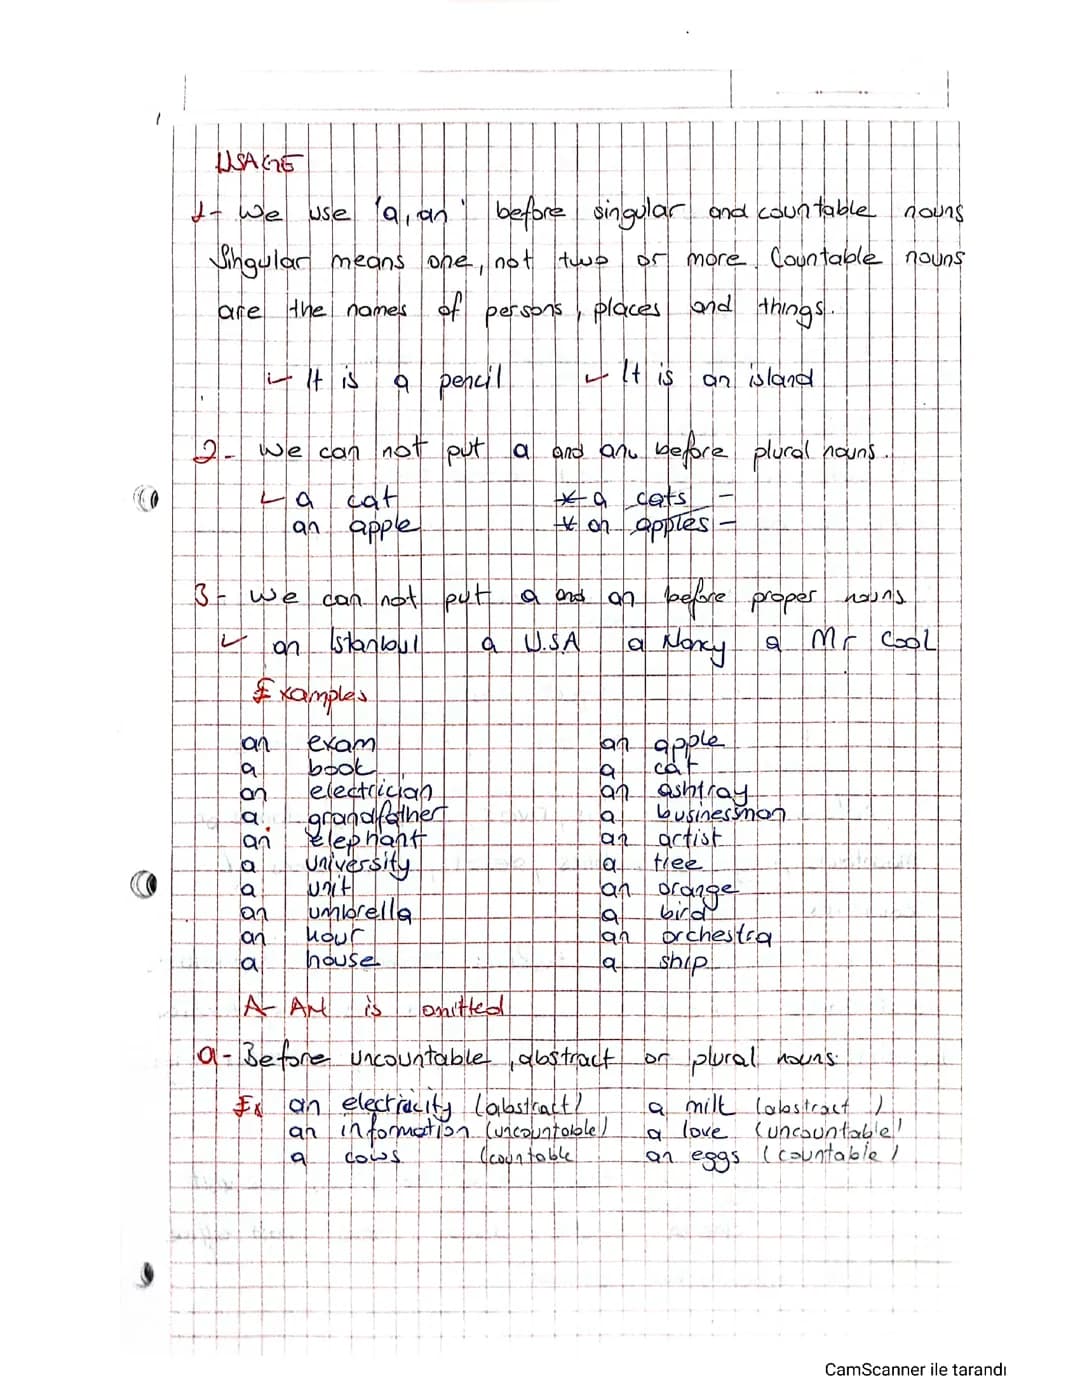 USAGE
1- We use 'a, an' before singular and countable nouns
Singular means one, not two or more. Countable nouns
are the names of persons, places and things.
✓ It is a pencil ✓ It is an island
2- We can not put a and an before plural nouns.
✓ a cat × a cats -
an apple × an apples -
3- We can not put a and an before proper nouns
✓ an Istanbul a U.S.A a Nancy a Mr Cool
Examples
an exam an apple
a book a cat
an electrician an ashtray
a grandfather a businessman
an elephant an artist
a university a tree
a unit an orange
an umbrella a bird
an hour an orchestra
a house a ship
A- AN is omitted
a- Before uncountable, abstract or plural nouns.
Ex an electricity (abstract) a milk (abstract)
an information (uncountable) a love (uncountable)
a cows (countable an eggs (countable)
CamScanner ile tarandı